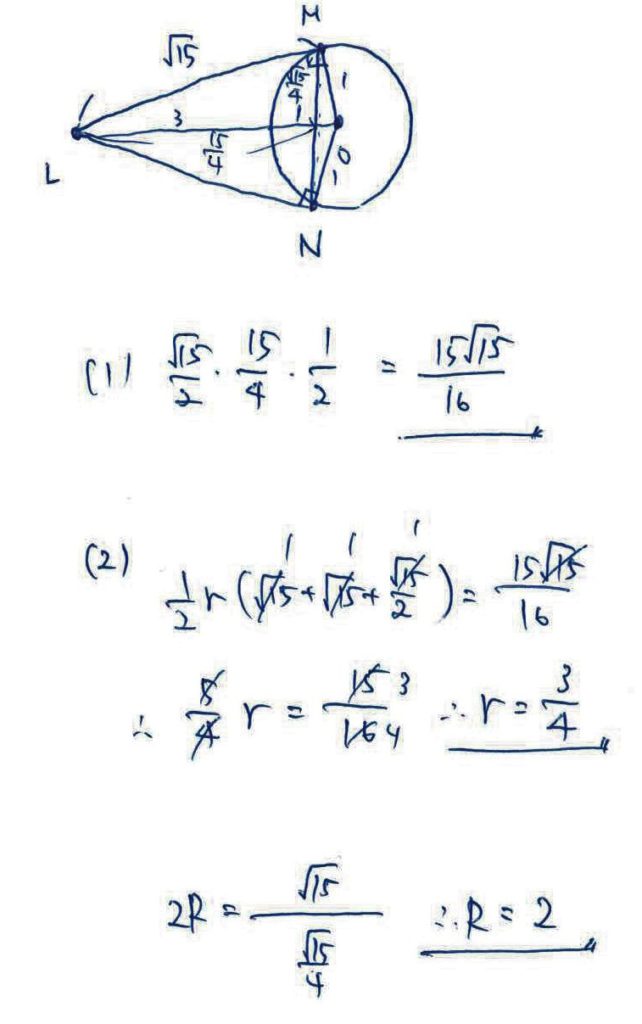 M
√15
√15/4
1
3
1
15/4
O
1
L
N
(1) √15/2 · 15/4 · 1/2 = 15√15/16
(2)
1 1 1
1/2 r (√15 + √15 + √15/2) = 15√15/16
∴ 5/4 r = 15/16 3 4 ∴ r = 3/4
2R = √15/(√15/4) ∴ R = 2